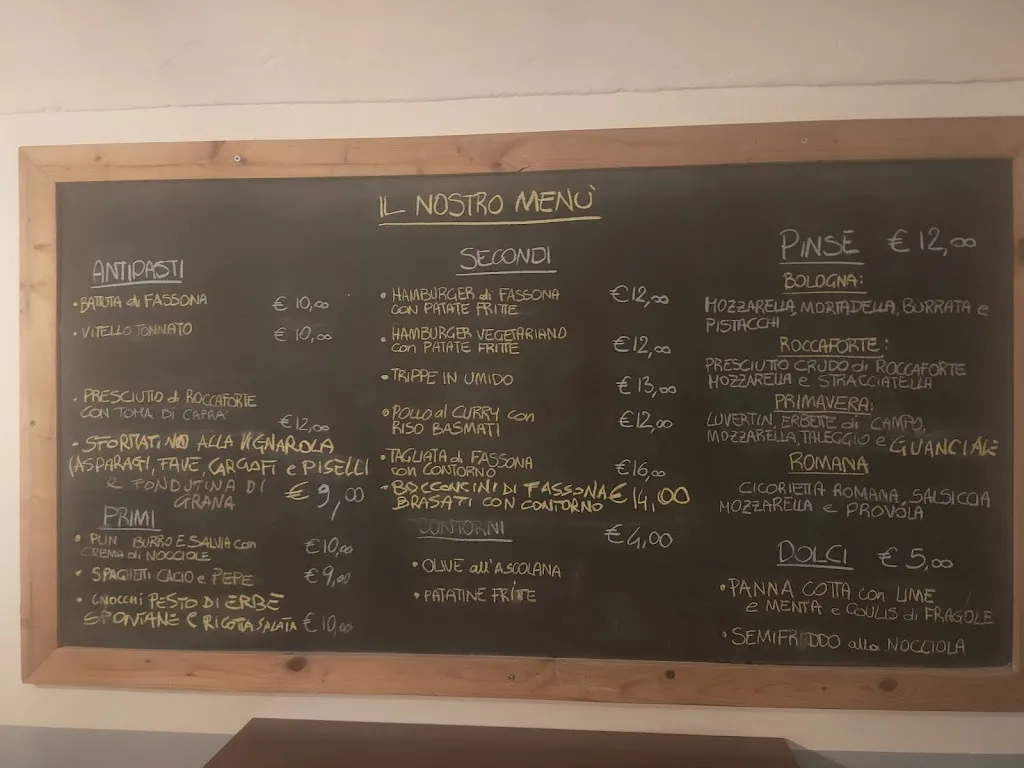 IL NOSTRO MENÙ
ANTIPASTI
• BATTUTA di FASSONA € 10,00
• VITELLO TONNATO € 10,00
• PRESCIUTTO di ROCCAFORTE
CON TOMA DI CAPRA € 12,00
• SFORMATINO ALLA VIGNAROLA
(ASPARAGI, FAVE, CARCIOFI e PISELLI
E FONDUTINA DI
GRANA € 9,00
PRIMI
• PLIN BURRO E SALVIA con
CREMA di NOCCIOLE € 10,00
• SPAGHETTI CACIO e PEPE € 9,00
• GNOCCHI PESTO DI ERBE
SPONTANE E RICOTTA SALATA € 10,00
SECONDI
• HAMBURGER di FASSONA
CON PATATE FRITTE € 12,00
• HAMBURGER VEGETARIANO
con PATATE FRITTE € 12,00
• TRIPPE IN UMIDO € 13,00
• POLLO al CURRY con
RISO BASMATI € 12,00
• TAGLIATA di FASSONA
con CONTORNO € 16,00
• BOCCONCINI DI FASSONA € 14,00
BRASATI CON CONTORNO
CONTORNI € 4,00
• OLIVE all'ASCOLANA
• PATATINE FRITTE
PINSE € 12,00
BOLOGNA:
MOZZARELLA, MORTADELLA, BURRATA e
PISTACCHI
ROCCAFORTE:
PRESCIUTTO CRUDO di ROCCAFORTE
MOZZARELLA e STRACCIATELLA
PRIMAVERA:
LUVERTIN, ERBETTE di CAMPO,
MOZZARELLA, TALEGGIO e GUANCIALE
ROMANA
CICORIETTA ROMANA, SALSICCIA
MOZZARELLA e PROVOLA
DOLCI € 5,00
• PANNA COTTA con LIME
e MENTA e COULIS di FRAGOLE
• SEMIFREDDO alla NOCCIOLA